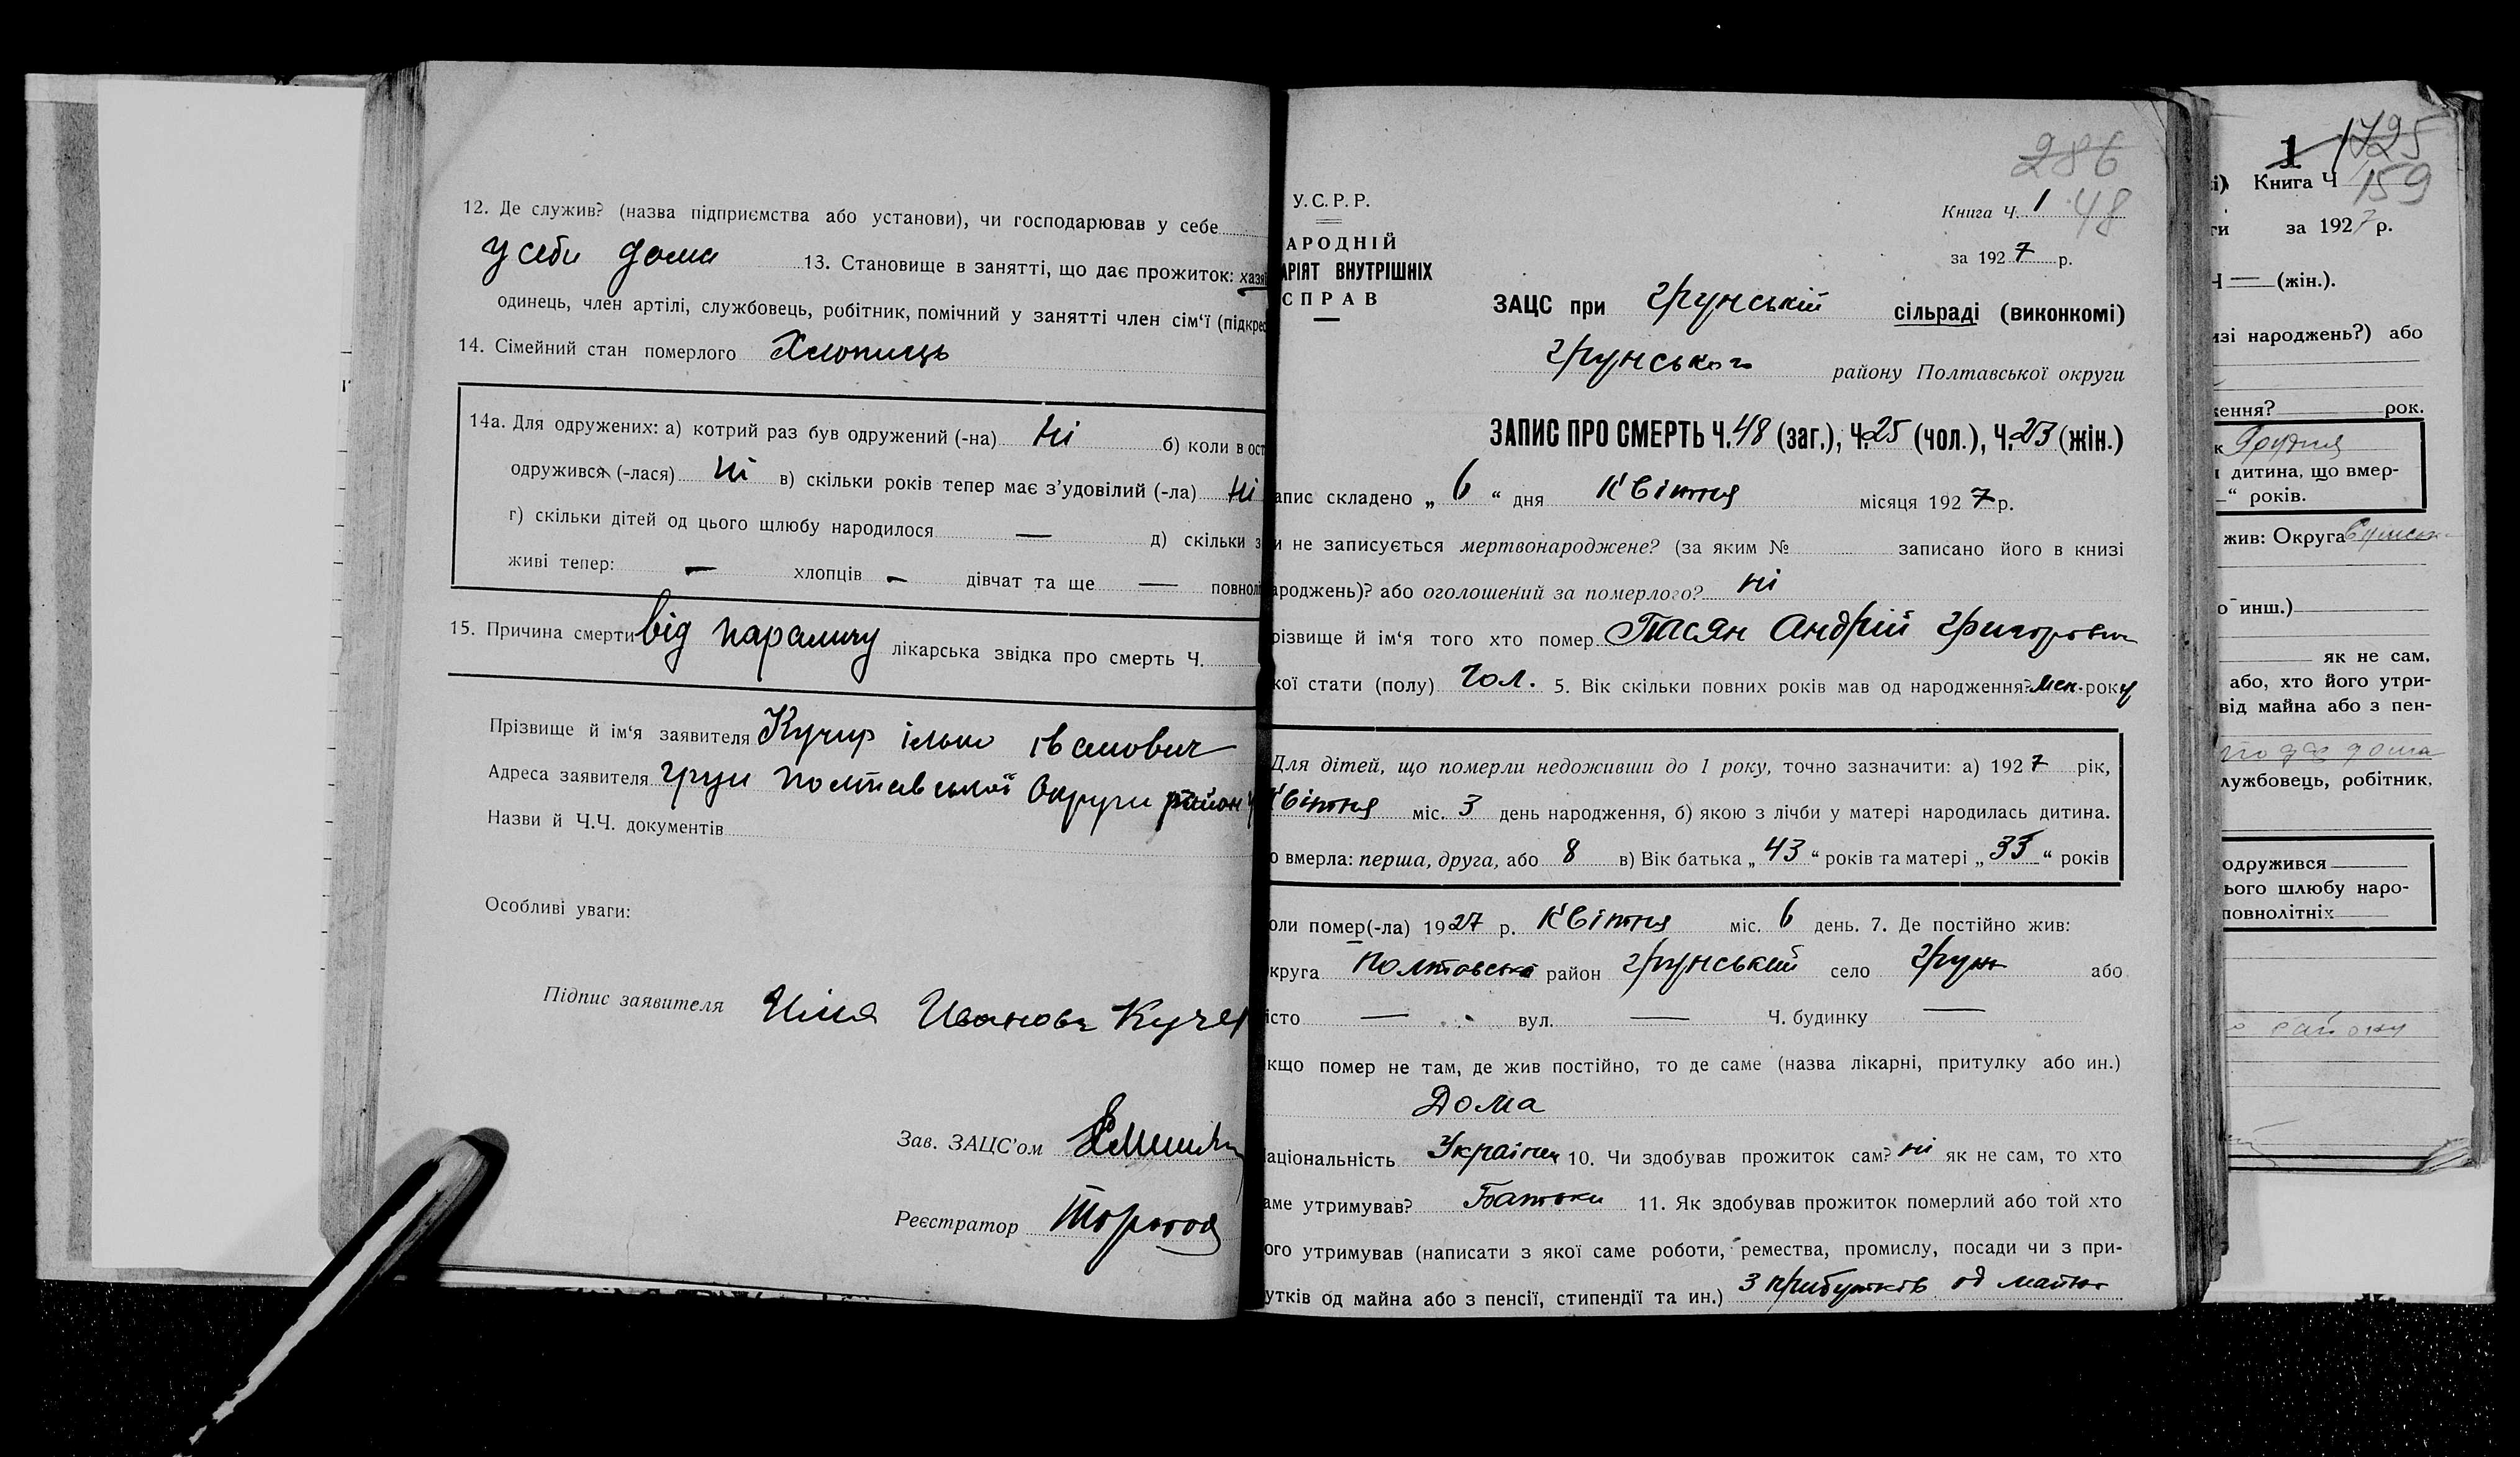 12. Де служив? (назва підприємства або установи), чи господарював у себе
у себи дома 13. Становище в занятті, що дає прожиток: хазя
одинець, член артілі, службовець, робітник, помічний у занятті член сім'ї (підкрес
14. Сімейний стан померлого Хлопиць
14а. Для одружених: а) котрий раз був одружений (-на) Ні б) коли в ост
одружився (-лася) Ні в) скільки років тепер має з'удовілий (-ла) Ні
г) скільки дітей од цього щлюбу народилося — д) скільки з
живі тепер: — хлопців — дівчат та ще — повнолі
15. Причина смерти від параличу лікарська звідка про смерть Ч.
Прізвище й ім'я заявителя Кучир ілько іванович
Адреса заявителя Грун Полтавської Округи район
Назви й Ч.Ч. документів
Особливі уваги:
Підпис заявителя Илия Иванова Кучер
Зав. ЗАЦС'ом
Реєстратор
286
У.С.Р.Р.
Книга Ч. 1 48
АРОДНІЙ
АРІЯТ ВНУТРІШНІХ
СПРАВ
за 1927 р.
ЗАЦС при Грунській сільраді (виконкомі)
Грунського району Полтавської округи
ЗАПИС ПРО СМЕРТЬ Ч. 48 (заг.), Ч. 25 (чол.), Ч. 23 (жін.)
апис складено „ 6 “ дня Квітня місяця 1927 р.
и не записується мертвонароджене? (за яким № записано його в книзі
ароджень)? або оголошений за померлого? ні
різвище й ім'я того хто помер Тасян Андрій Григорович
кої стати (полу) Чол. 5. Вік скільки повних років мав од народження? Мен. року
Для дітей, що померли недоживши до 1 року, точно зазначити: а) 1927 рік,
Квітня міс. 3 день народження, б) якою з лічби у матері народилась дитина.
о вмерла: перша, друга, або 8 в) Вік батька „ 43 “ років та матері „ 33 “ років
оли помер(-ла) 1927 р. Квітня міс. 6 день. 7. Де постійно жив:
круга Полтавська район Грунський село Грунь або
істо — вул. — Ч. будинку —
кщо помер не там, де жив постійно, то де саме (назва лікарні, притулку або ин.)
Дома
аціональність Україниц 10. Чи здобував прожиток сам? ні як не сам, то хто
аме утримував? Батьки 11. Як здобував прожиток померлий або той хто
ого утримував (написати з якої саме роботи, ремества, промислу, посади чи з при-
утків од майна або з пенсії, стипендії та ин.) З прибутків од майна
1 1725
і) Книга Ч 159
ги за 1927 р.
Ч — (жін.).
изі народжень?) або
ження? рок.
к Грудня
дитина, що вмер-
—“ років.
жив: Округа Сумськ
о инш.)
як не сам,
або, хто його утри-
від майна або з пен-
дома
лужбовець, робітник,
одружився
ього шлюбу наро-
повнолітніх
району